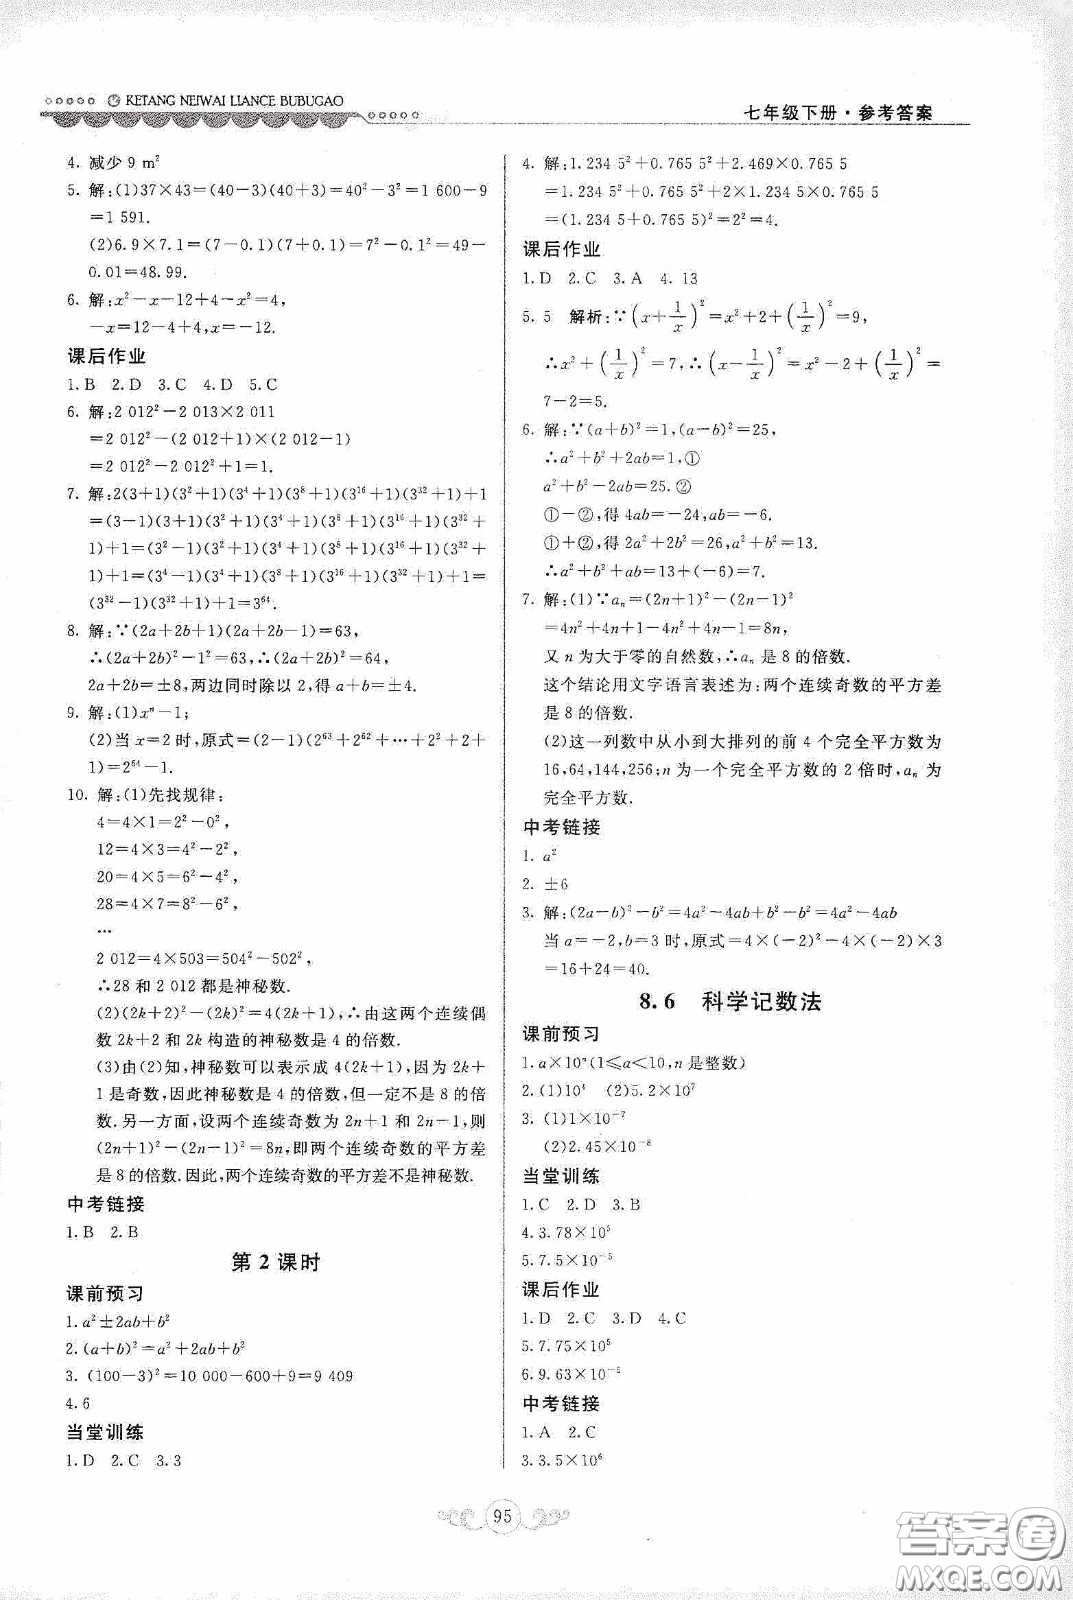 KETANG NEIWAI LIANCE BUBUGAO
七年级下册·参考答案
4. 减少 9 m²
5. 解:(1)37×43=(40-3)(40+3)=40²-3²=1 600-9
=1 591.
(2)6.9×7.1=(7-0.1)(7+0.1)=7²-0.1²=49-
0.01=48.99.
6. 解:x²-x-12+4-x²=4,
-x=12-4+4,x=-12.
课后作业
1.B 2.D 3.C 4.D 5.C
6. 解:2 012²-2 013×2 011
=2 012²-(2 012+1)×(2 012-1)
=2 012²-2 012²+1=1.
7. 解:2(3+1)(3²+1)(3⁴+1)(3⁸+1)(3¹⁶+1)(3³²+1)+1
=(3-1)(3+1)(3²+1)(3⁴+1)(3⁸+1)(3¹⁶+1)(3³²+
1)+1=(3²-1)(3²+1)(3⁴+1)(3⁸+1)(3¹⁶+1)(3³²+
1)+1=(3⁴-1)(3⁴+1)(3⁸+1)(3¹⁶+1)(3³²+1)+1=
(3³²-1)(3³²+1)+1=3⁶⁴.
8. 解:∵(2a+2b+1)(2a+2b-1)=63,
∴(2a+2b)²-1²=63,∴(2a+2b)²=64,
2a+2b=±8,两边同时除以 2,得 a+b=±4.
9. 解:(1)xⁿ-1;
(2)当 x=2 时,原式=(2-1)(2⁶³+2⁶²+…+2²+2+
1)=2⁶⁴-1.
10. 解:(1)先找规律:
4=4×1=2²-0²,
12=4×3=4²-2²,
20=4×5=6²-4²,
28=4×7=8²-6²,
…
2 012=4×503=504²-502²,
∴28 和 2 012 都是神秘数.
(2)(2k+2)²-(2k)²=4(2k+1),∴由这两个连续偶
数 2k+2 和 2k 构造的神秘数是 4 的倍数.
(3)由(2)知,神秘数可以表示成 4(2k+1),因为 2k+
1 是奇数,因此神秘数是 4 的倍数,但一定不是 8 的倍
数.另一方面,设两个连续奇数为 2n+1 和 2n-1,则
(2n+1)²-(2n-1)²=8n,即两个连续奇数的平方差
是 8 的倍数.因此,两个连续奇数的平方差不是神秘数.
中考链接
1.B 2.B
第 2 课时
课前预习
1.a²±2ab+b²
2.(a+b)²=a²+2ab+b²
3.(100-3)²=10 000-600+9=9 409
4.6
当堂训练
1.D 2.C 3.3
4. 解:1.234 5²+0.765 5²+2.469×0.765 5
=1.234 5²+0.765 5²+2×1.234 5×0.765 5
=(1.234 5+0.765 5)²=2²=4.
课后作业
1.D 2.C 3.A 4.13
5.5 解析:∵(x+1/x)²=x²+2+(1/x)²=9,
∴x²+(1/x)²=7,∴(x-1/x)²=x²-2+(1/x)²=
7-2=5.
6. 解:∵(a+b)²=1,(a-b)²=25,
∴a²+b²+2ab=1,①
a²+b²-2ab=25.②
①-②,得 4ab=-24,ab=-6.
①+②,得 2a²+2b²=26,a²+b²=13.
∴a²+b²+ab=13+(-6)=7.
7. 解:(1)∵aₙ=(2n+1)²-(2n-1)²
=4n²+4n+1-4n²+4n-1=8n,
又 n 为大于零的自然数,∴aₙ 是 8 的倍数.
这个结论用文字语言表述为:两个连续奇数的平方差
是 8 的倍数.
(2)这一列数中从小到大排列的前 4 个完全平方数为
16,64,144,256;n 为一个完全平方数的 2 倍时,aₙ 为
完全平方数.
中考链接
1. a²
2. ±6
3. 解:(2a-b)²-b²=4a²-4ab+b²-b²=4a²-4ab
当 a=-2,b=3 时,原式=4×(-2)²-4×(-2)×3
=16+24=40.
8.6 科学记数法
课前预习
1.a×10ⁿ(1≤a<10,n 是整数)
2.(1)10⁴ (2)5.2×10⁷
3.(1)1×10⁻⁷
(2)2.45×10⁻⁸
当堂训练
1.C 2.D 3.B
4.3.78×10⁵
5.7.5×10⁻⁵
课后作业
1.D 2.C 3.D 4.C
5.7.75×10⁵
6.9.63×10⁻⁵
中考链接
1.A 2.C
3.3.5×10⁶
95
答案卷
MXQE.COM